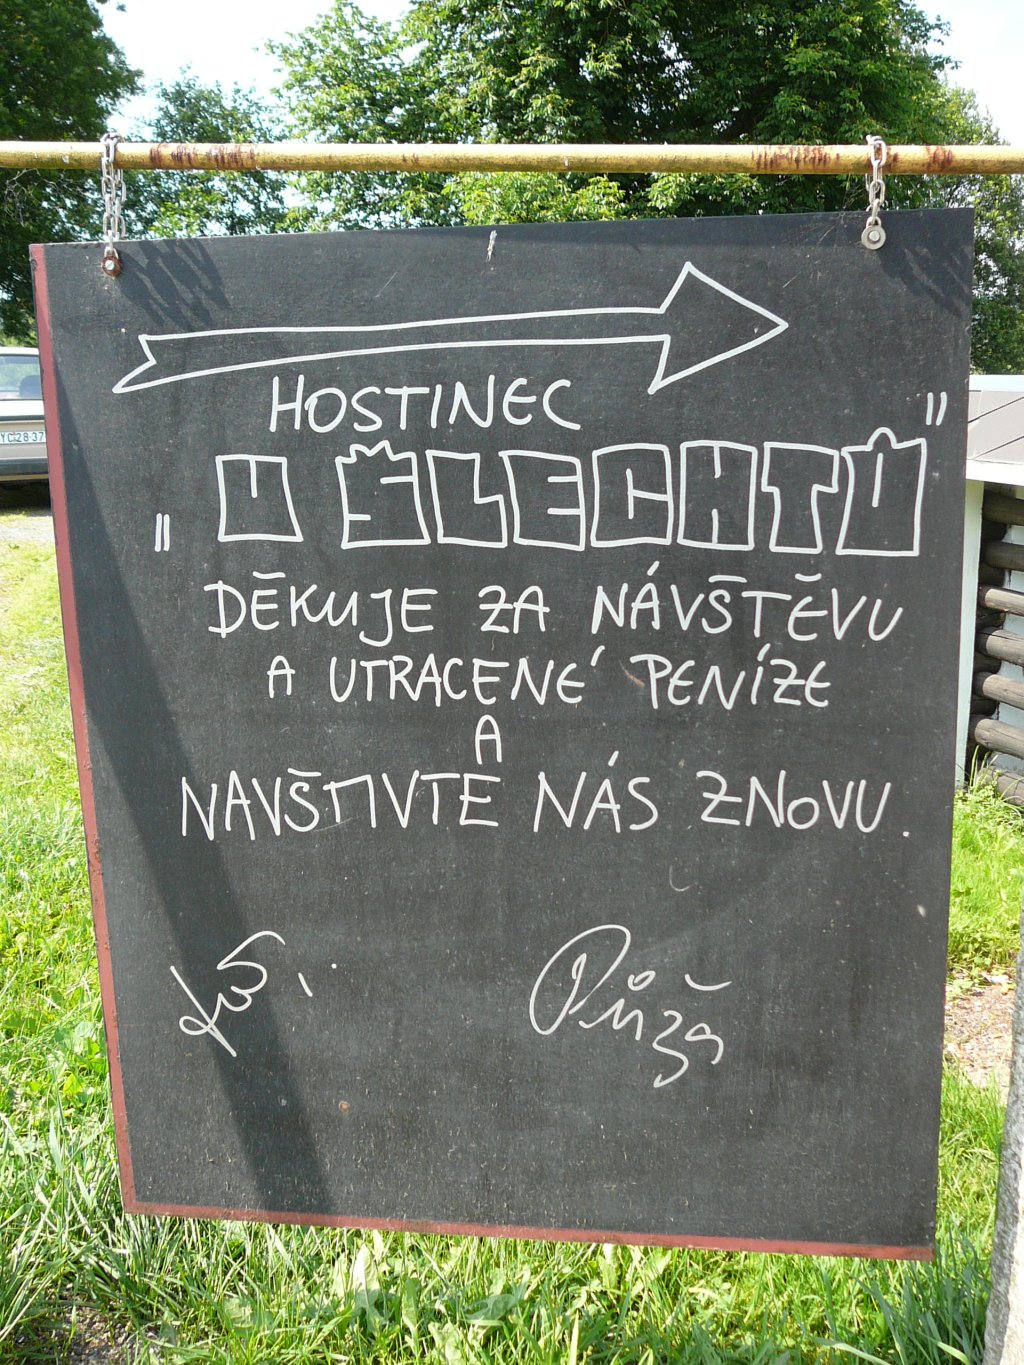 HOSTINEC
„U ŠLECHTŮ"
DĚKUJE ZA NÁVŠTĚVU
A UTRACENÉ PENÍZE
A
NAVŠTIVTE NÁS ZNOVU.
Růža